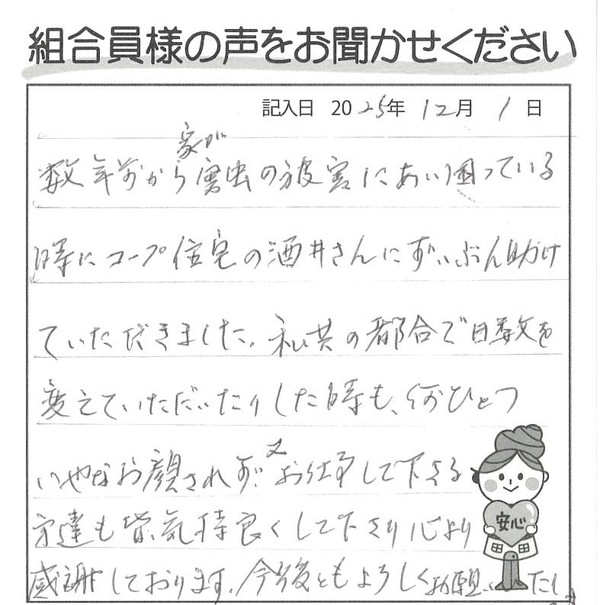 組合員様の声をお聞かせください
記入日 2025年 12月 1日
家が
数年前から害虫の被害にあい困っている
時にコープ住宅の酒井さんにずいぶん助け
ていただきました。私共の都合で日数を
変えていただいたりした時も、何ひとつ
いやなお顔されず、又お仕事して下さる
方達も皆気持良くして下さり心より
感謝しております。今後ともよろしくお願いいたし
安心